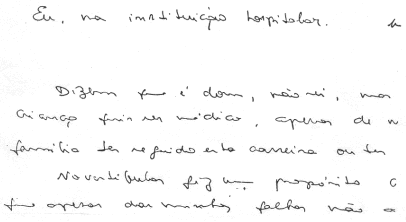 Eu, na instituição hospitalar.
Dizem que é dom, não sei, mas
criança quis ser médico, apesar de n
família ter seguido esta carreira ou ter
No vestibular fiz um propósito c
que apesar das minhas falhas não a